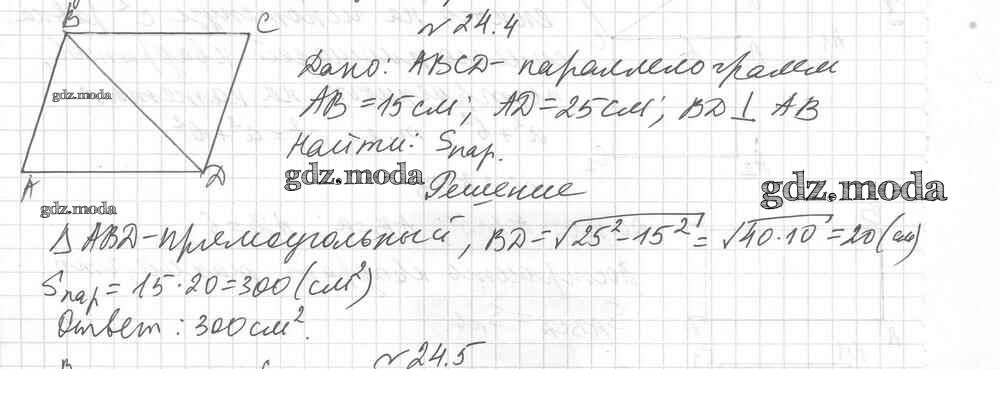 B C №24.4
gdz.moda
Дано: ABCD- параллелограмм
AB = 15 см; AD = 25 см; BD ⊥ AB
Найти: Sпар.
A D gdz.moda Решение gdz.moda
gdz.moda
Δ ABD-прямоугольный, BD = √25²-15² = √40·10 = 20 (см)
Sпар = 15·20 = 300 (см²)
Ответ: 300 см².
B C №24.5